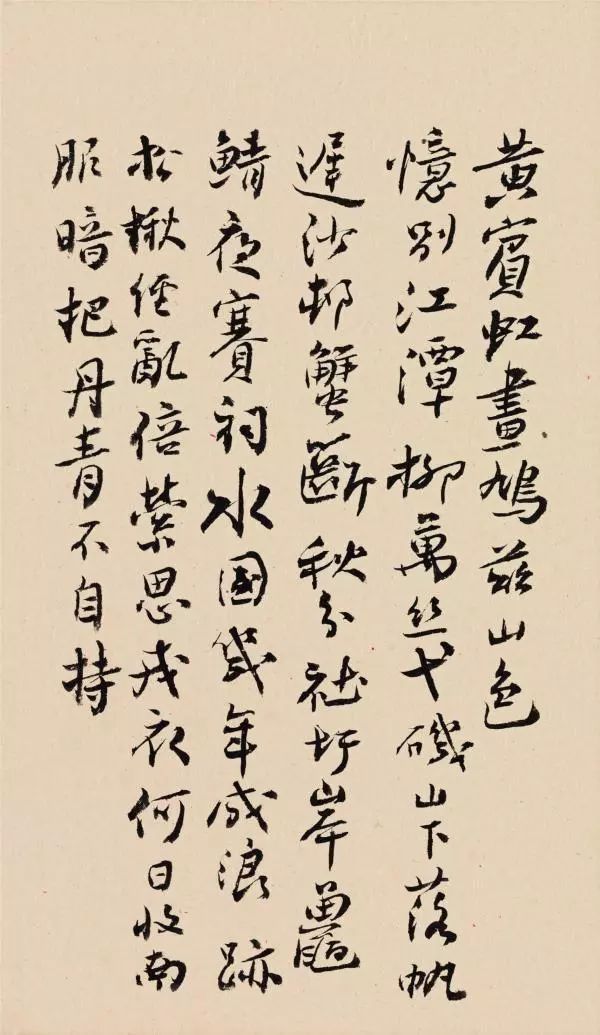 黃賓虹畫鳩茲山色
憶別江潭柳萬丝弋磯山下落帆
遲沙邨蟹斷秋分社圩岸鼉
鯖夜賽祠水國幾年成浪跡
松楸經亂倍縈思戎衣何日收南
服暗把丹青不自持